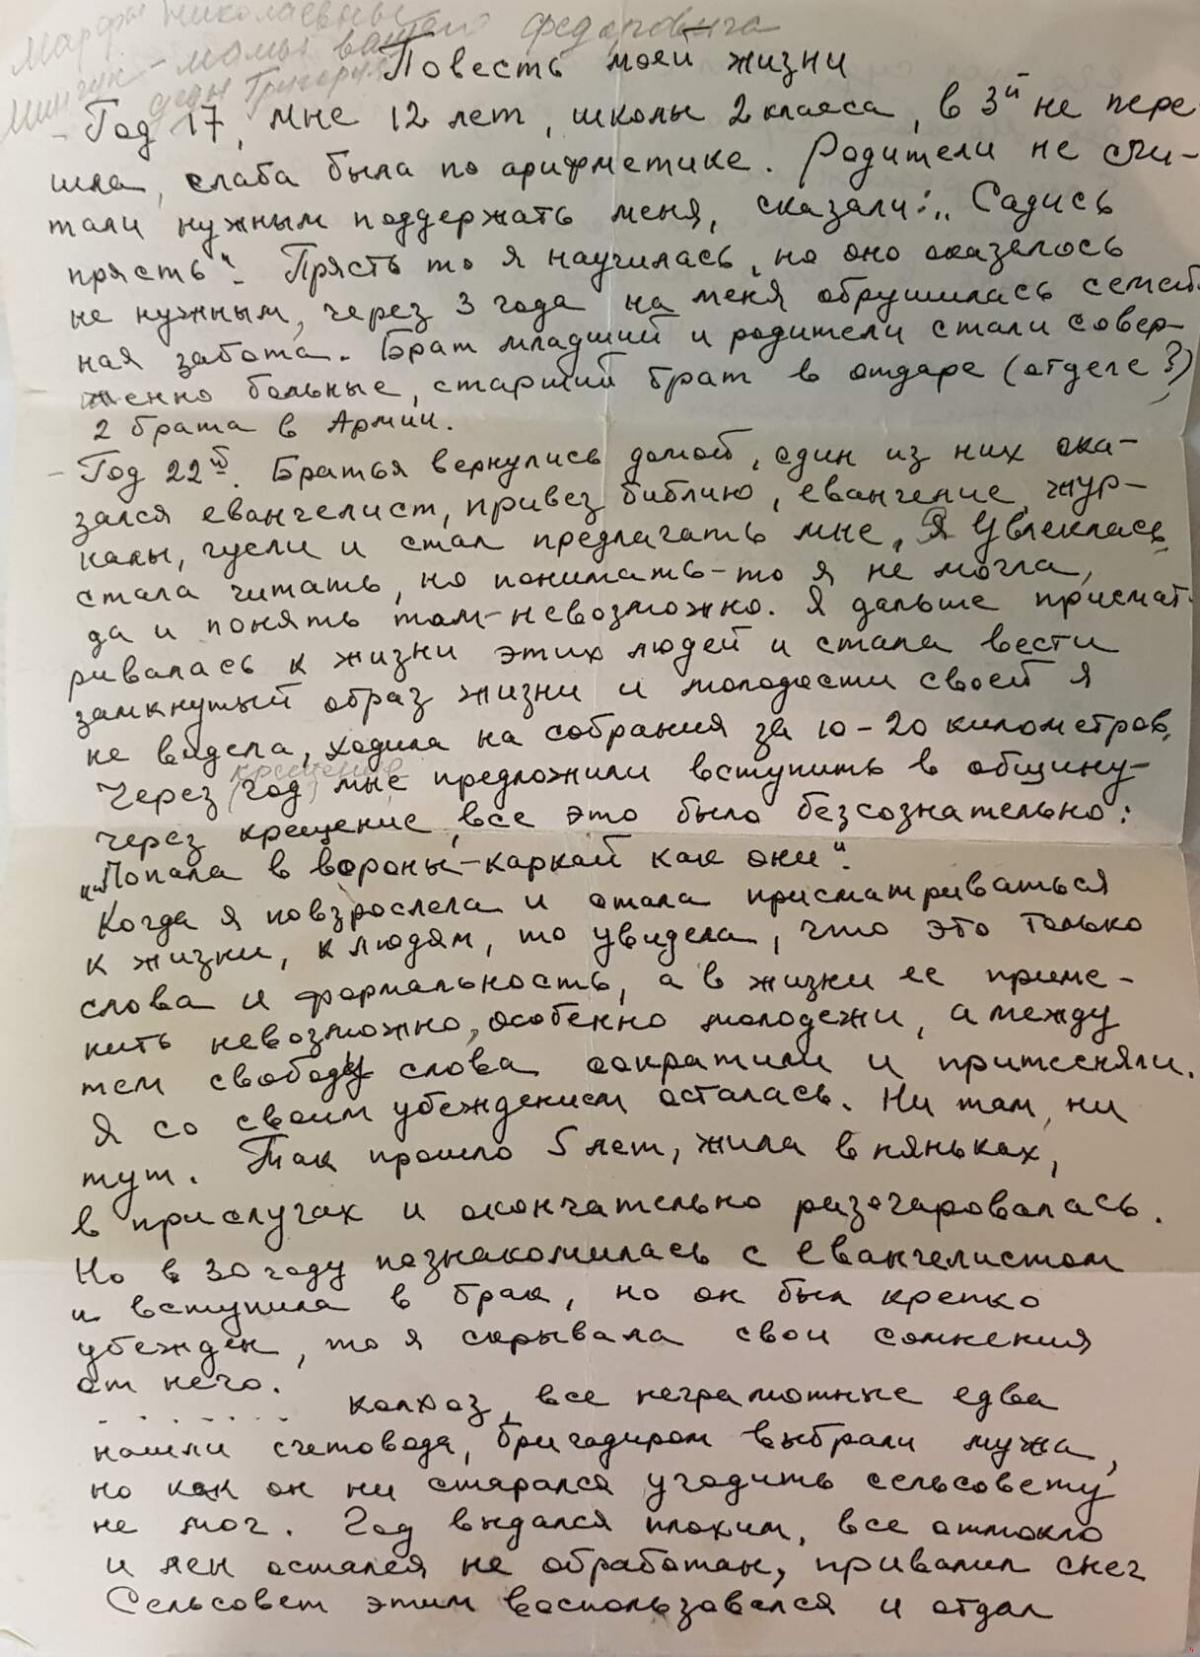 Марфы Николаевны
Мингук - мамы вашего Федоровича
деды Григория
Повесть моей жизни
- Год 17, мне 12 лет, школы 2 класса, в 3й не пере
шла, слаба была по арифметике. Родители не счи-
тали нужным поддержать меня, сказали: „Садись
прясть". Прясть то я научилась, но оно оказалось
не нужным, через 3 года на меня обрушилась семей-
ная забота. Брат младший и родители стали совер-
шенно больные, старший брат в отдаре (отделе?)
2 брата в Армии.
- Год 22й. Братья вернулись домой, один из них ока-
зался евангелист, привез библию, евангение, жур-
налы, гусли и стал предлагать мне. Я увлеклась,
стала читать, но понимать-то я не могла,
да и понять там-невозможно. Я дальше присмат-
ривалась к жизни этих людей и стала вести
замкнутый образ жизни и молодости своей я
не видела, ходила на собрания за 10-20 километров.
крещение
Через (год) мне предложили вступить в общину-
через крещение, все это было безсознательно:
„Попала в вороны-каркай как они".
Когда я повзрослела и стала присматриваться
к жизни, к людям, то увидела, что это только
слова и формальность, а в жизни ее приме-
нить невозможно, особенно молодежи, а между
тем свободу слова сократили и притесняли.
Я со своим убеждением осталась. Ни там, ни
тут. Так прошло 5 лет, жила в няньках,
в прислугах и окончательно разочаровалась.
Но в 30 году познакомилась с евангелистом
и вступила в брак, но он был крепко
убежден, то я скрывала свои сомнения
от него.
. . . . . . . . колхоз, все неграмотные едва
нашли счетовода, бригадиром выбрали мужа,
но как он ни старался угодить сельсовету
не мог. Год выдался плохим, все отмокло
и лен остался не обработан, привалил снег
Сельсовет этим воспользовался и отдал